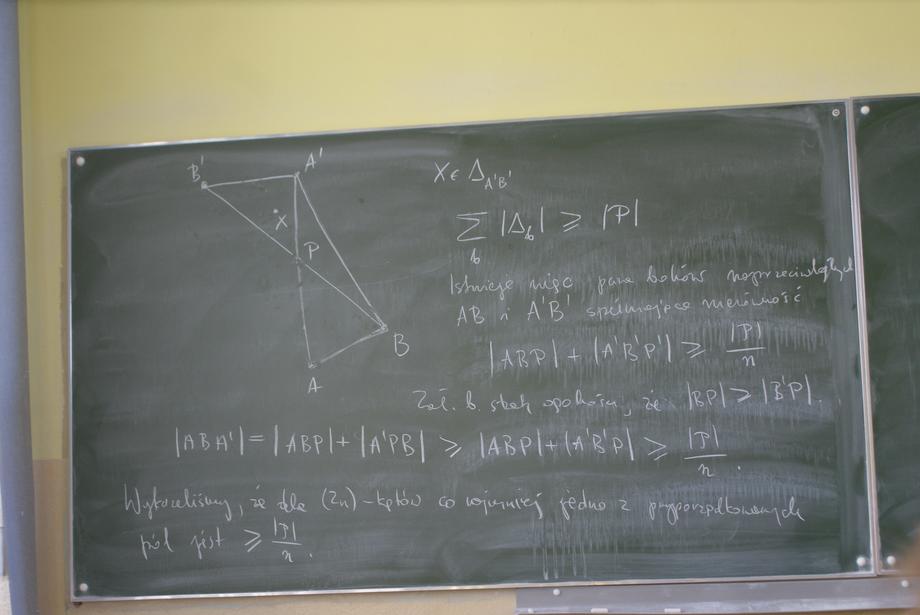 B'
A'
X
P
B
A
X ∈ Δ_{A'B'}
∑_b |Δ_b| ⩾ |𝒫|
Istnieje więc para boków naprzeciwległych
AB i A'B' spełniająca nierówność
|ABP| + |A'B'P'| ⩾ |𝒫|/n
Zał. b. straty ogólności, że |BP| ⩾ |B'P|.
|ABA'| = |ABP| + |A'PB| ⩾ |ABP| + |A'B'P| ⩾ |𝒫|/n.
Wykazaliśmy, że dla (2n)-kątów co najmniej jedno z przyporządkowanych
pól jest ⩾ |𝒫|/n.